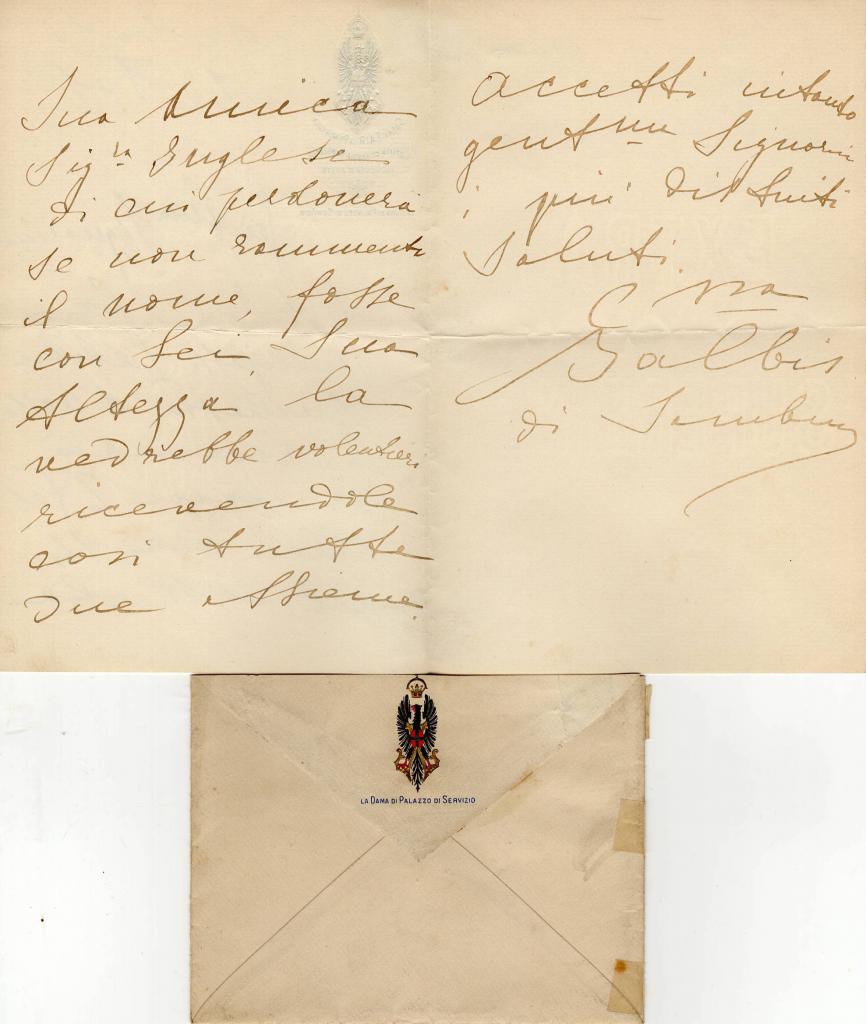 Sua Amica
Sig.ra Inglese
di cui perdonerà
se non rammento
il nome, fosse
con Lei, Sua
Altezza la
vedrebbe volentieri
ricevendole
così tutte
due assieme.
accetti intanto
gentma Signorina
i più distinti
saluti.
Balbis
di
LA DAMA DI PALAZZO DI SERVIZIO